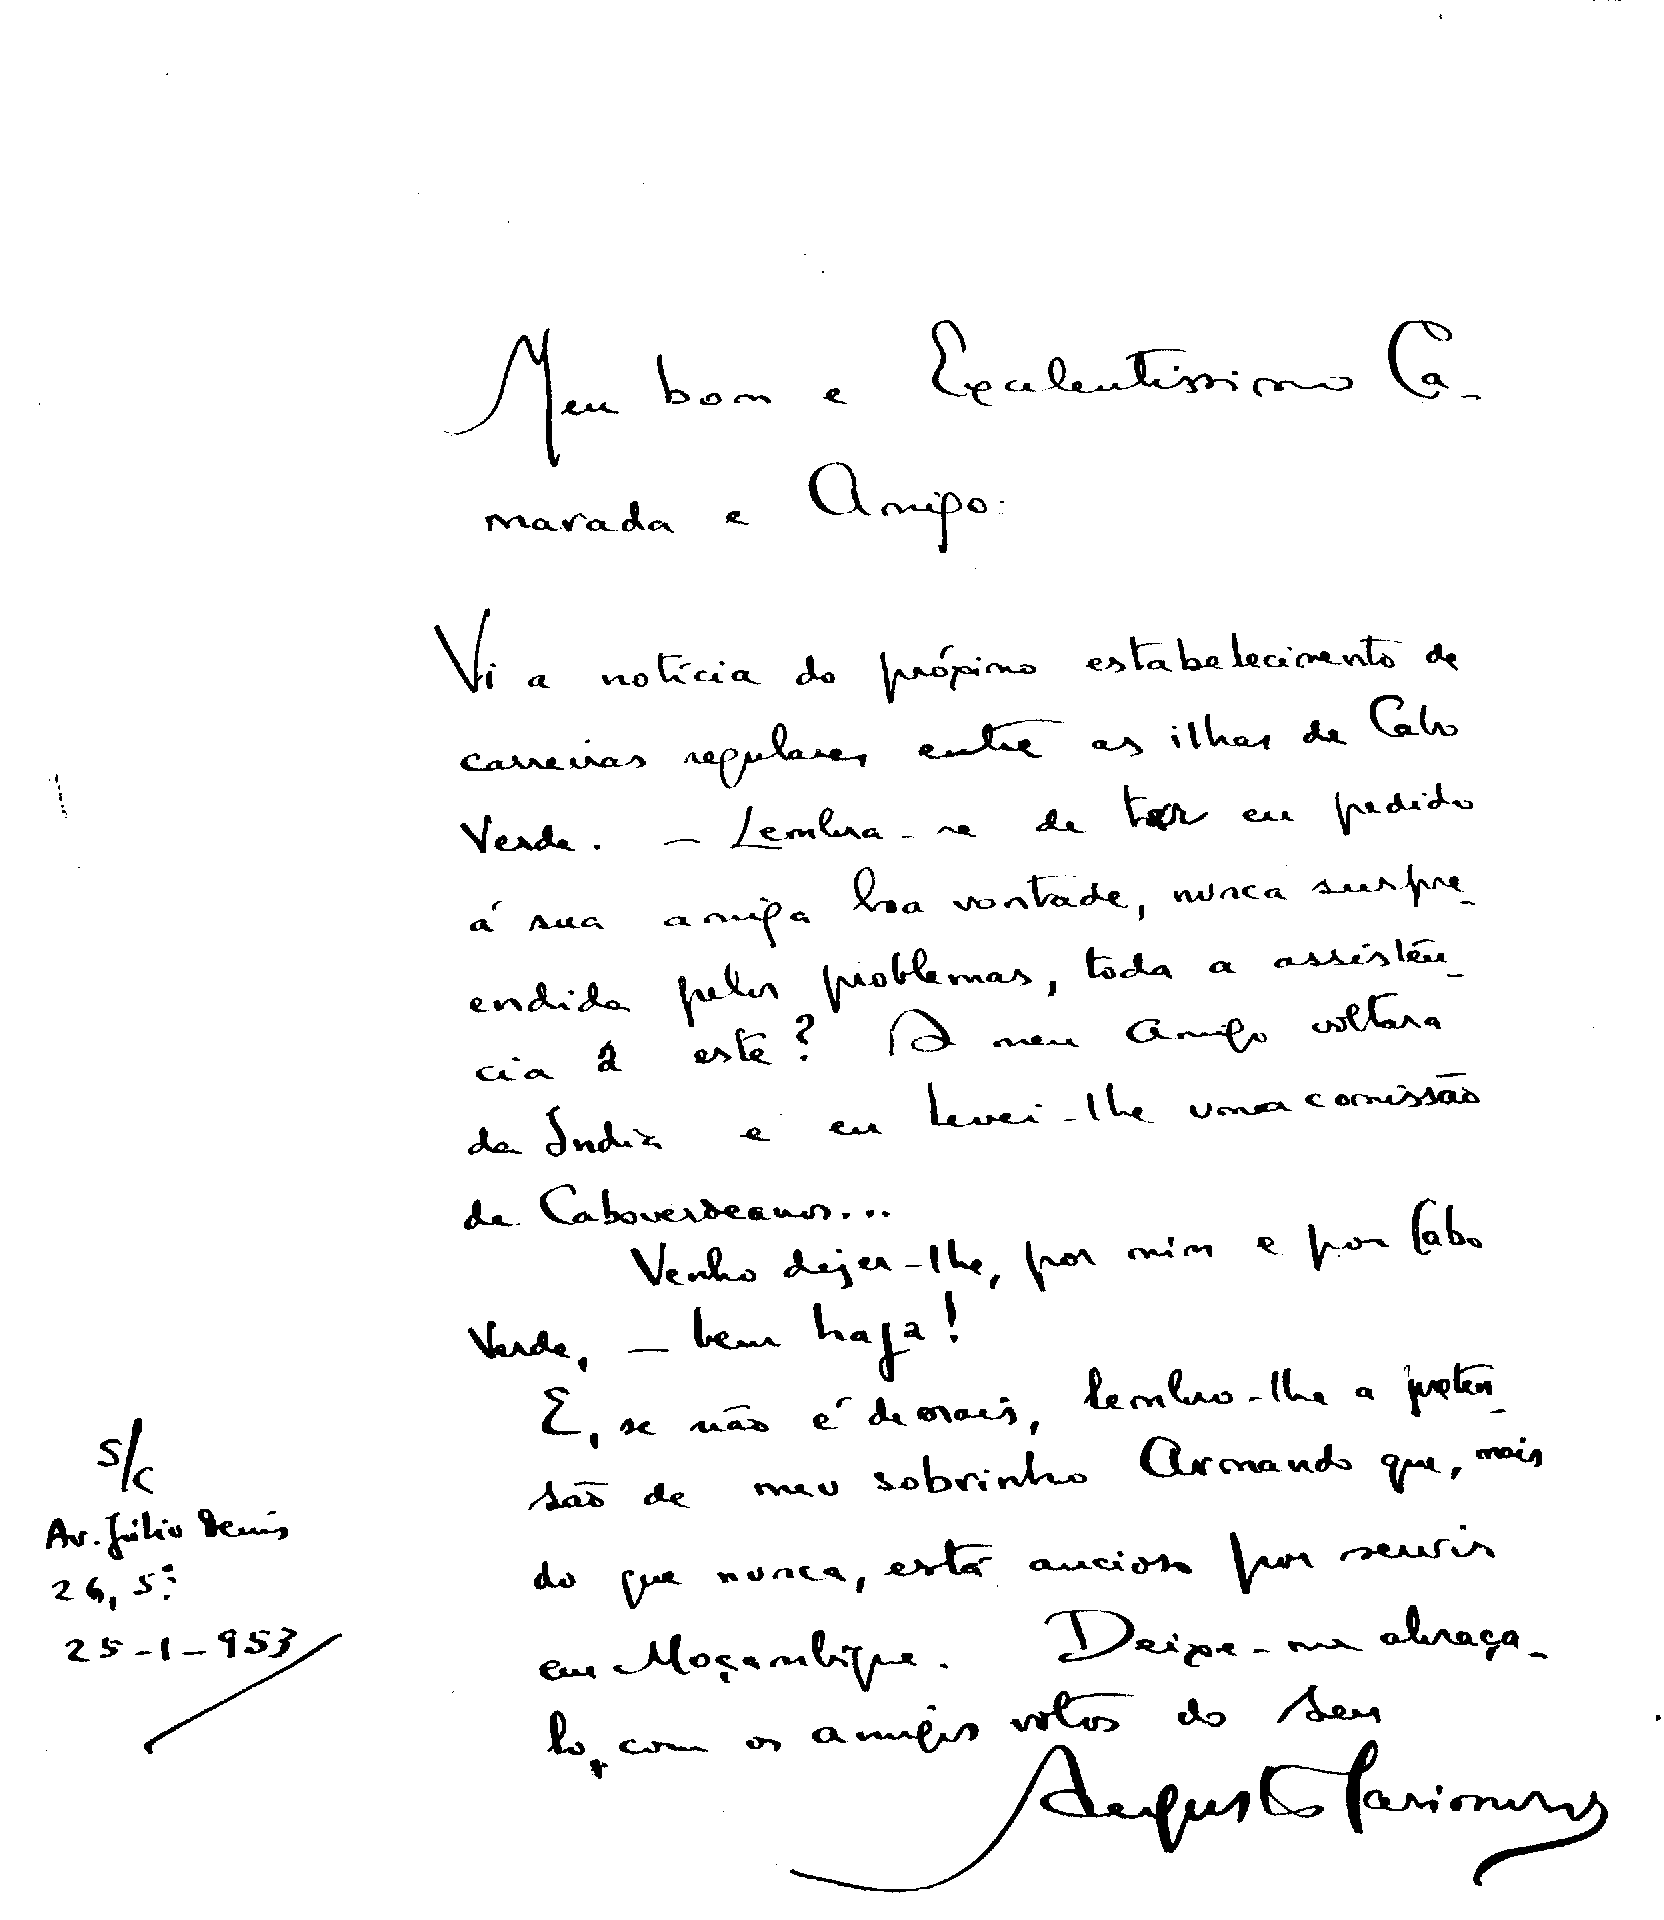 Meu bom e Excelentissimo Ca-
marada e Amigo:
Vi a notícia do próximo estabelecimento de
carreiras regulares entre as ilhas de Cabo
Verde. — Lembra-se de ter eu pedido
á sua amiga boa vontade, nunca surpre-
endida pelos problemas, toda a assistên-
cia a este? O meu Amigo voltara
da India e eu levei-lhe uma comissão
de Caboverdeanos...
Venho dizer-lhe, por mim e por Cabo
Verde, — bem haja!
E, se não é demais, lembro-lhe a preten-
são de meu sobrinho Armando que, mais
do que nunca, está ancioso por servir
em Moçambique. Deixe-me abraça-
lo, com os amigos votos do seu
Augusto Casimiro
S/C
Av. Júlio Denis
26, 5º
25-1-953